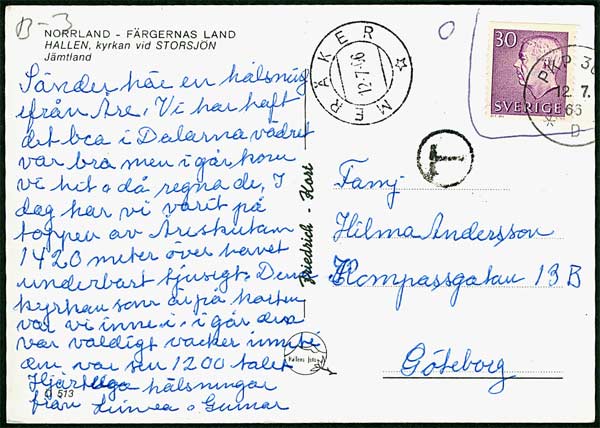 B-3
NORRLAND - FÄRGERNAS LAND
HALLEN, kyrkan vid STORSJÖN
Jämtland
Sänder här en hälsning
ifrån Åre, Vi har haft
det bra i Dalarna vädret
var bra men i går kom
vi hit o då regnade, I
dag har vi varit på
toppen av Åreskutan
1420 meter över havet
underbart tjusigt. Den
kyrkan som är på kortet
var vi inne i, i går den
var väldigt vacker inuti
den var sen 1200 talet
Hjärtliga hälsningar
från Linnea o Gunnar
g 513
MERÄKER
12.7.66
Friedrich - Kort
Hallens foto
T
30
SVERIGE
PLFP 30
12.7.
66
D
Famj
Hilma Andersson
Kompassgatan 13 B
Göteborg